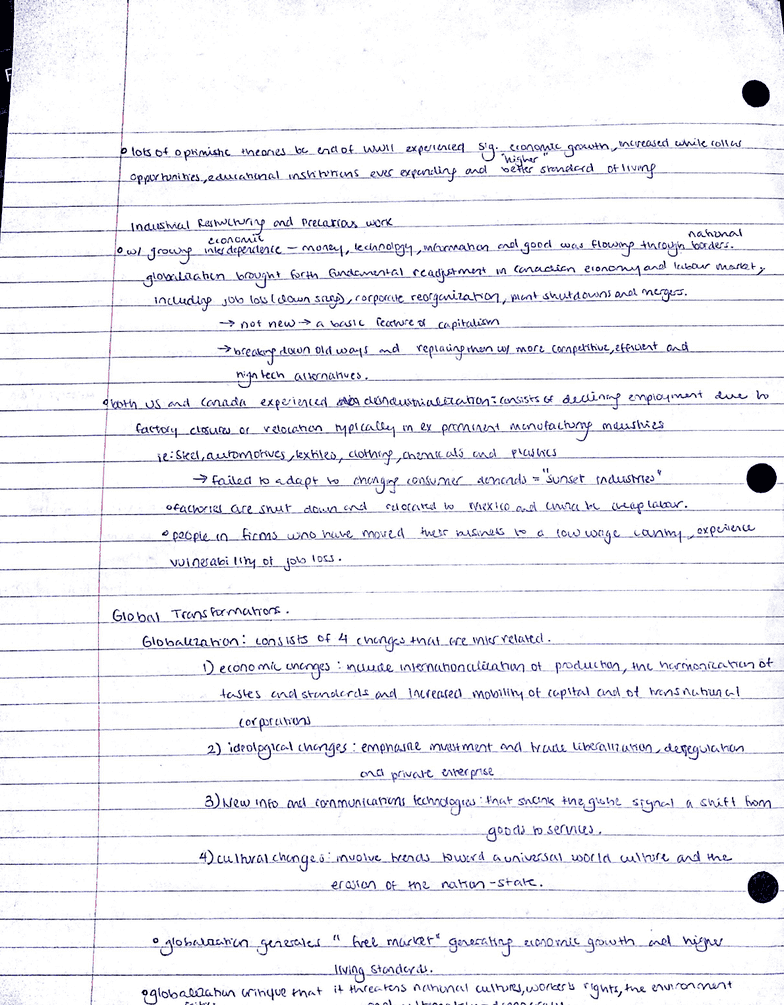 o lots of optimistic theories bc end of WWII experienced sig. economic growth, increased white collar
opportunities, educational institutions ever expanding and "higher" better standard of living
Industrial Restructuring and Precarious work
o w/ growing economic interdependence – money, technology, information and good was flowing through national borders.
globalization brought forth fundamental readjustment in Canadian economy and labour market,
including job loss (down sizing), corporate reorganization, plant shutdowns and mergers.
→ not new → a basic feature of capitalism
→ breaking down old ways and replacing them w/ more competitive, efficient and
high tech alternatives.
o both US and Canada experienced deindustrialization: consists of declining employment due to
factory closures or relocation typically in ex prominent manufacturing industries
ie: Steel, automotives, textiles, clothing, chemicals and plastics
→ failed to adapt to changing consumer demands = "sunset industries"
o factories are shut down and relocated to Mexico and China bc cheap labour.
o people in firms who have moved their business to a low wage country, experience
vulnerability of job loss.
Global Transformations.
Globalization: consists of 4 changes that are interrelated.
1) economic changes: include internationalization of production, the harmonization of
tastes and standards and increased mobility of capital and of transnational
corporations
2) ideological changes: emphasize investment and trade liberalization, deregulation
and private enterprise
3) New info and communications technologies: that shrink the globe signal a shift from
goods to services.
4) cultural changes: involve trends toward a universal world culture and the
erosion of the nation-state.
o globalization generates "free market" generating economic growth and higher
living standards.
o globalization critique that it threatens national cultures, workers rights, the environment